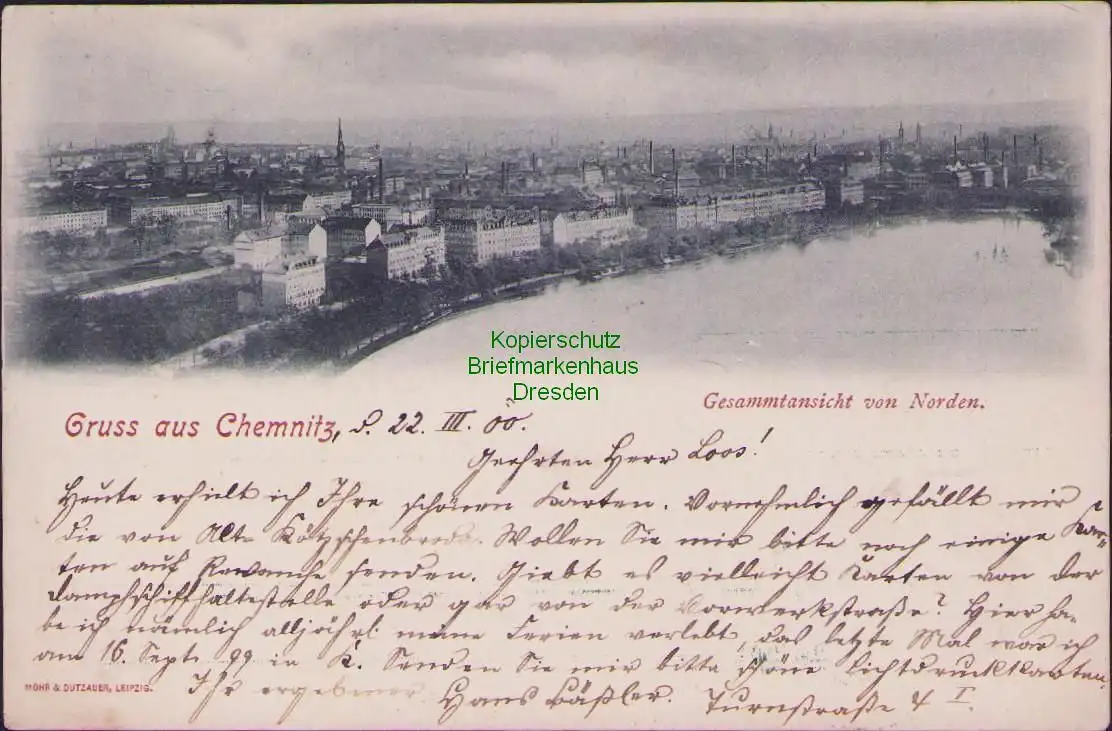 Kopierschutz
Briefmarkenhaus
Dresden
Gesammtansicht von Norden.
Gruss aus Chemnitz, d. 22. III. 00.
Geehrten Herr Loos!
Heute erhielt ich Ihre schönen Karten. Vornehmlich gefällt mir
die von Alt-Kötzschenbroda. Wollen Sie mir bitte noch einige Kar-
ten auf Revanche senden. Giebt es vielleicht Karten von der
Dampfschiffhaltestelle oder gar von der Vorwerkstraße? Hier ha-
be ich nämlich alljährl. meine Ferien verlebt, das letzte Mal war ich
am 16. Sept. 99 in K. Senden Sie mir bitte schöne Lichtdruckkarten.
Ihr ergebener Hans Bäßler. Turnstraße 4 I
MOHR & DUTZAUER, LEIPZIG.